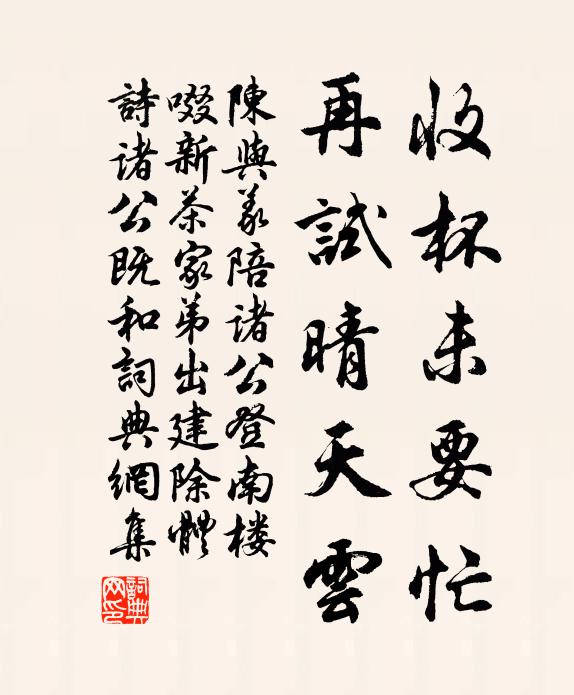 收杯未要忙
再試晴天雲
陳與義陪諸公登南楼
啜新茶家弟出建除體
詩诸公既和詞典網集
詞典網印